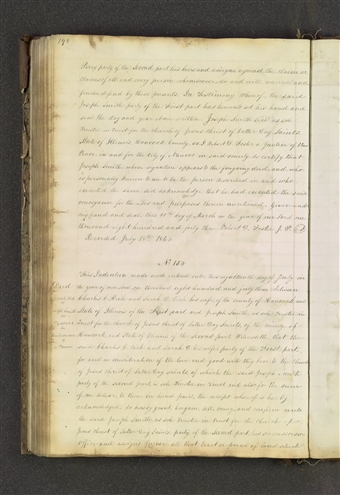 198
party of the second part his heirs and assigns against the claim or
claims of all and every person whomsoever do and will warrant and
forever defend by these presents. In testimony whereof the said
Joseph Smith party of the first part has hereunto set his hand and
seal the day and year above written. Joseph Smith
Trustee in trust for the church of Jesus Christ of Latter Day Saints
State of Illinois Hancock County, ss, I Robert D. Foster a Justice of the
Peace, in and for the City of Nauvoo in said county do certify that
Joseph Smith whose signature appears to the foregoing deed, and who
is personally known to me to be the person described in and who
executed the same did acknowledge that he had executed the said
conveyance for the uses and purposes therein mentioned. Given under
my hand and seal this day of March in the year of our Lord one
thousand eight hundred and forty three. Robert D. Foster J. P.
Recorded July 18th 1843
This Indenture made and entered into this eighteenth day of July in
the year of our Lord one thousand eight hundred and forty three between
Charles C. Rich and Sarah D. Rich his wife of the county of Hancock and
State of Illinois of the first part and Joseph Smith as sole Trustee in
Trust for the church of Jesus Christ of Latter Day Saints of the county of
Hancock and State of Illinois of the second part Witnesseth that the
said Charles C. Rich and Sarah D. his wife party of the first part
for and in consideration of the love and good will they bear to the Church
of Jesus Christ of Latter Day Saints of which the said Joseph Smith
party of the second part is sole Trustee in Trust and also for the sum
of one dollar to them in hand paid, the receipt whereof is hereby
acknowledged, do hereby grant, bargain, sell, convey, and confirm unto
the said Joseph Smith as sole Trustee in trust for the church of
Jesus Christ of Latter Day Saints party of the second part his successors in
office and assigns forever all that tract or parcel of land